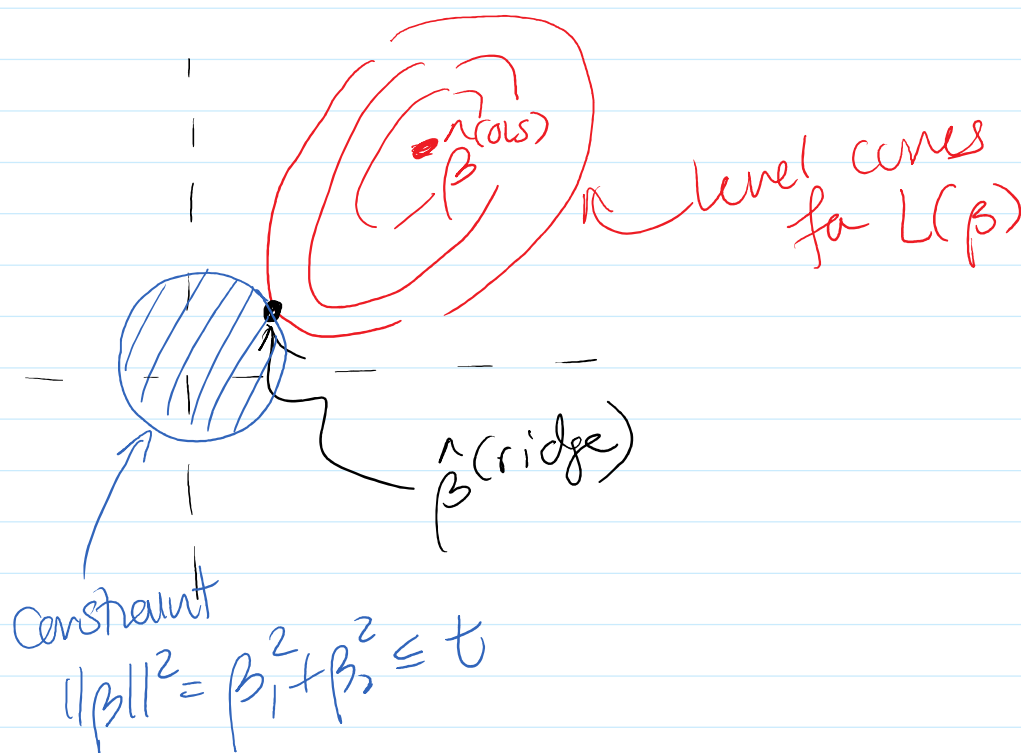 β̂(OLS)
Level curves
for L(β)
β̂(ridge)
Constraint
||β||² = β₁² + β₂² ≤ t